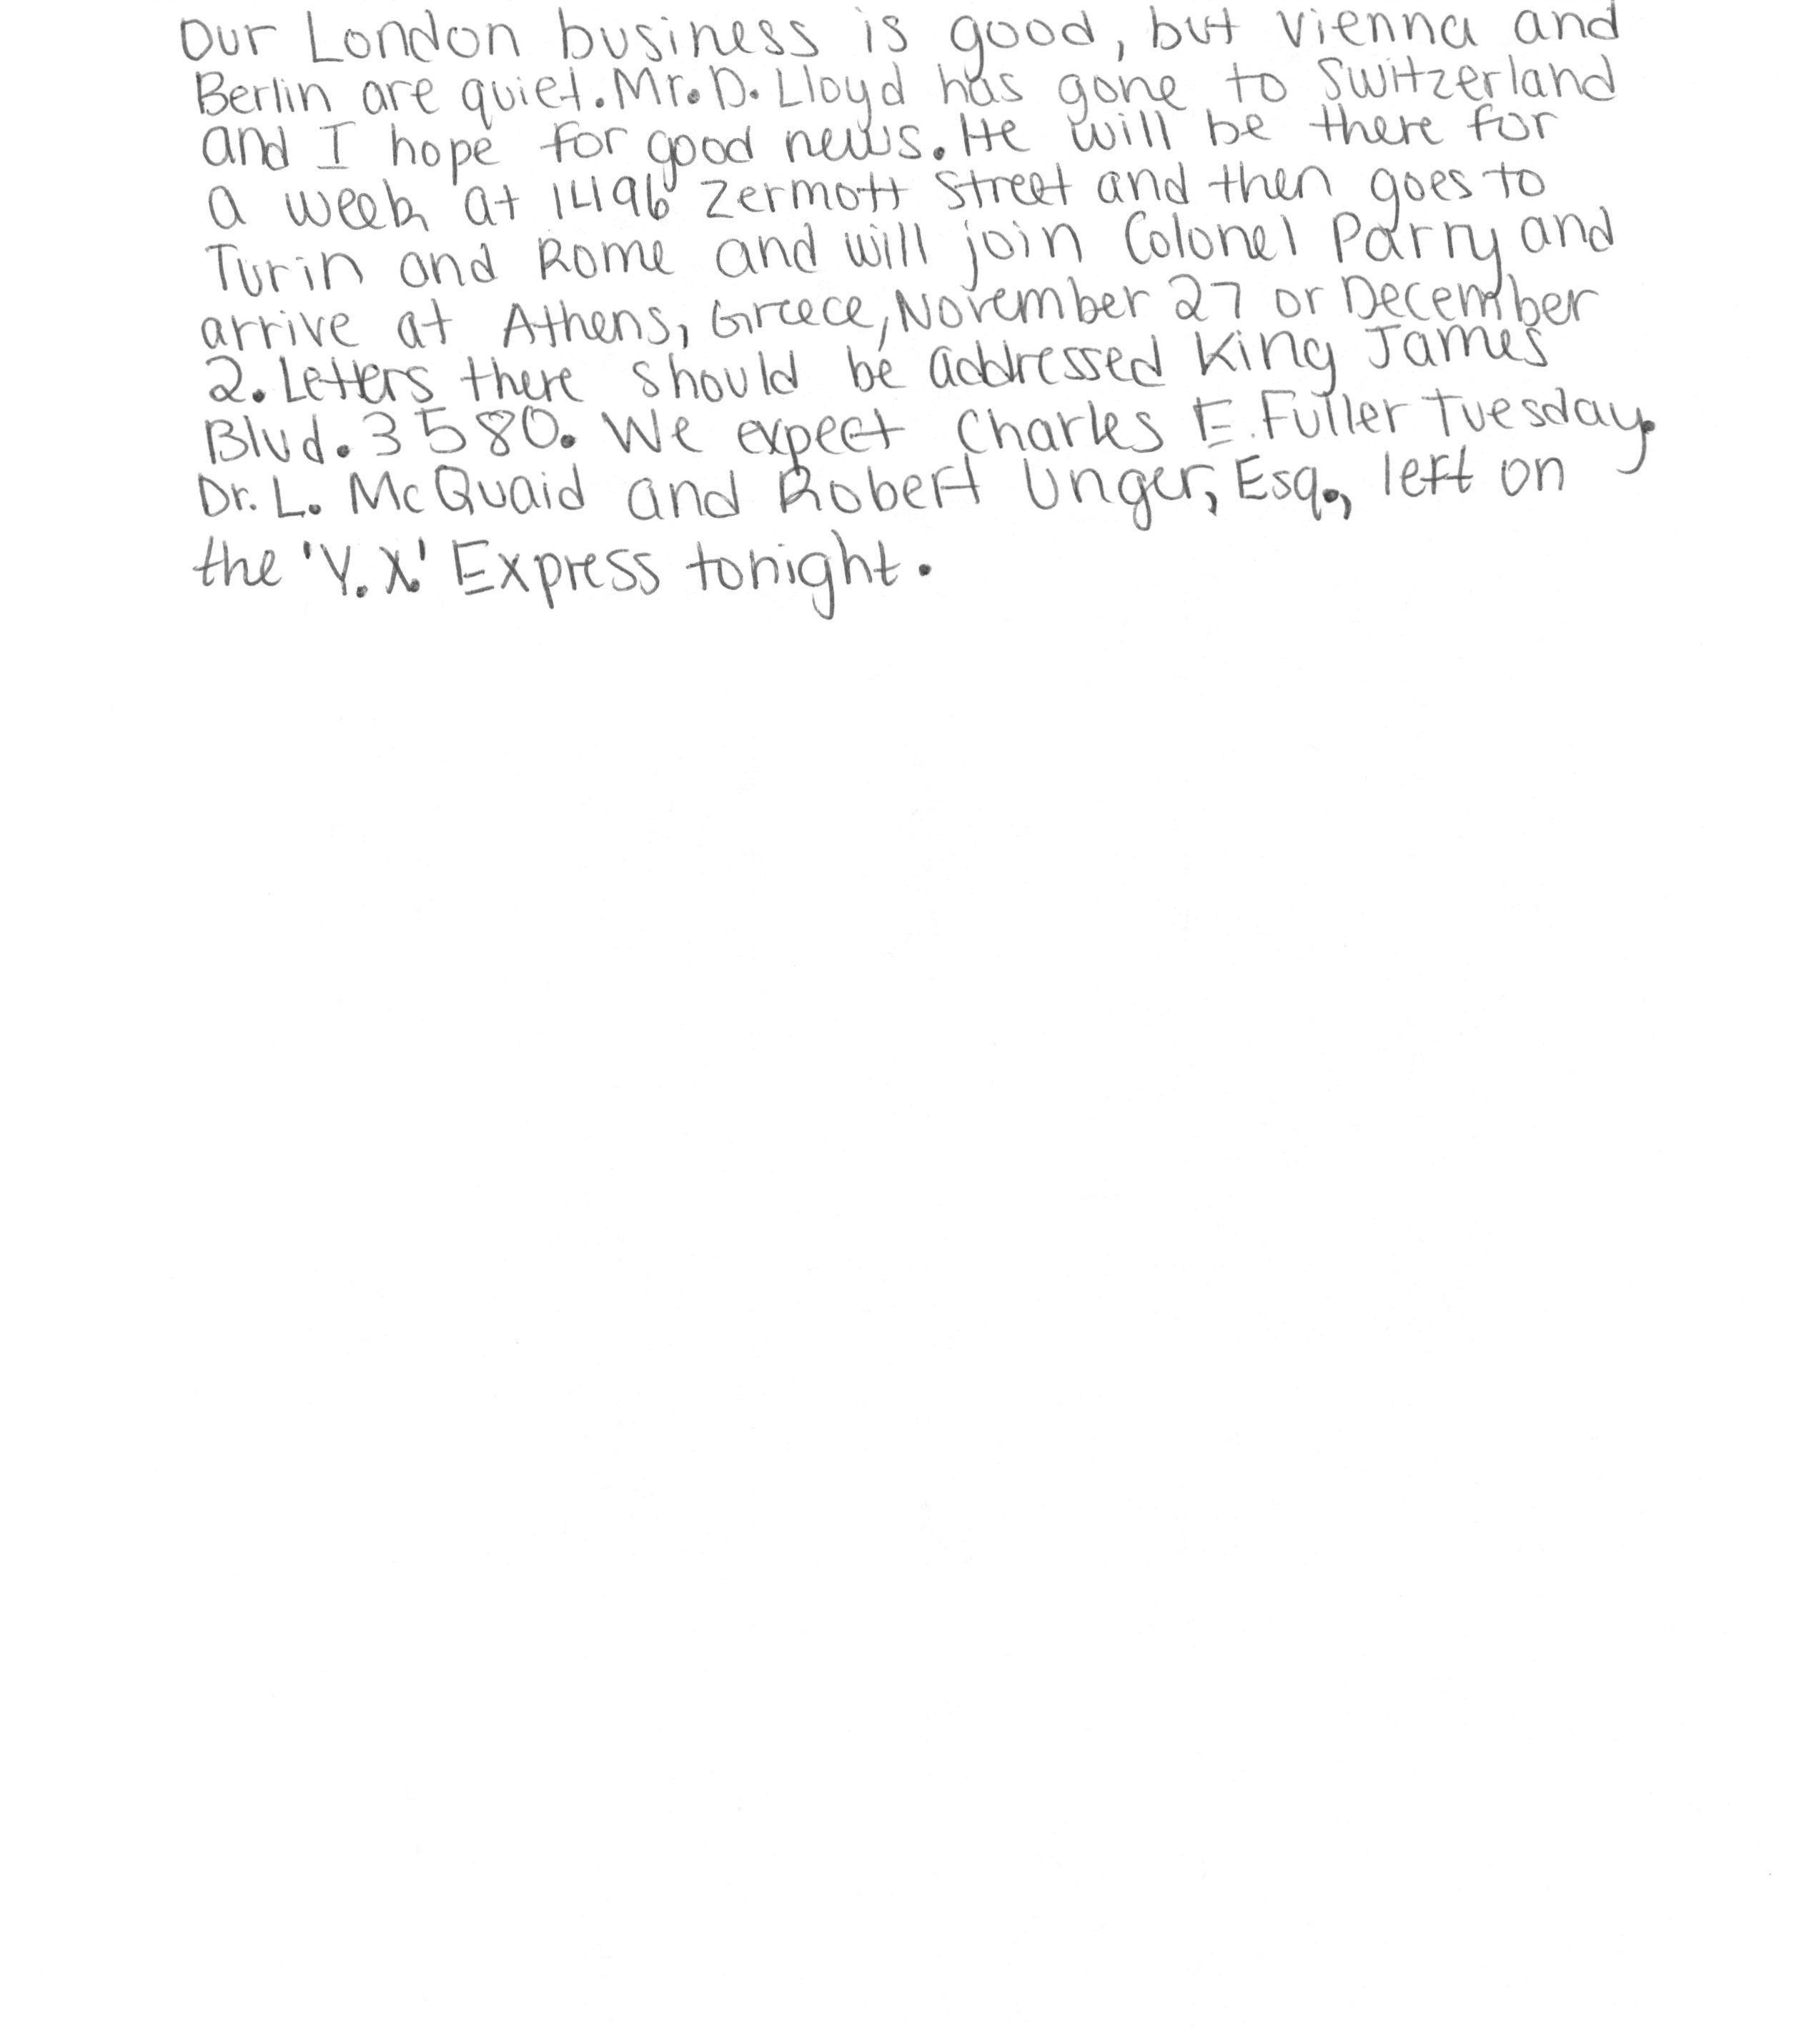 Our London business is good, but Vienna and
Berlin are quiet. Mr. D. Lloyd has gone to Switzerland
and I hope for good news. He will be there for
a week at 1496 Zermott Street and then goes to
Turin and Rome and will join Colonel Parry and
arrive at Athens, Greece, November 27 or December
2. Letters there should be addressed King James
Blvd. 3580. We expect Charles E. Fuller Tuesday.
Dr. L. McQuaid and Robert Unger, Esq., left on
the 'Y.X.' Express tonight.